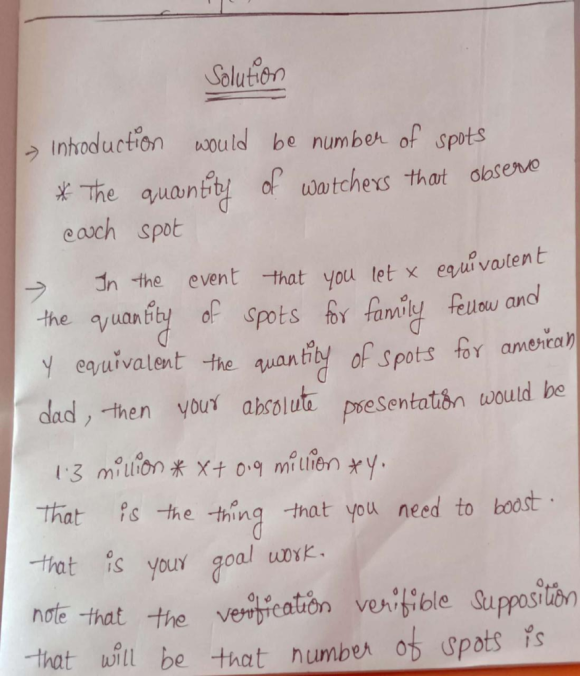 Solution
→ Introduction would be number of spots
* The quantity of watchers that observe
each spot
→ In the event that you let x equivalent
the quantity of spots for family fellow and
y equivalent the quantity of spots for american
dad, then your absolute presentation would be
1.3 million * x + 0.9 million * y.
That is the thing that you need to boost.
that is your goal work.
note that the verification verifible supposition
that will be that number of spots is